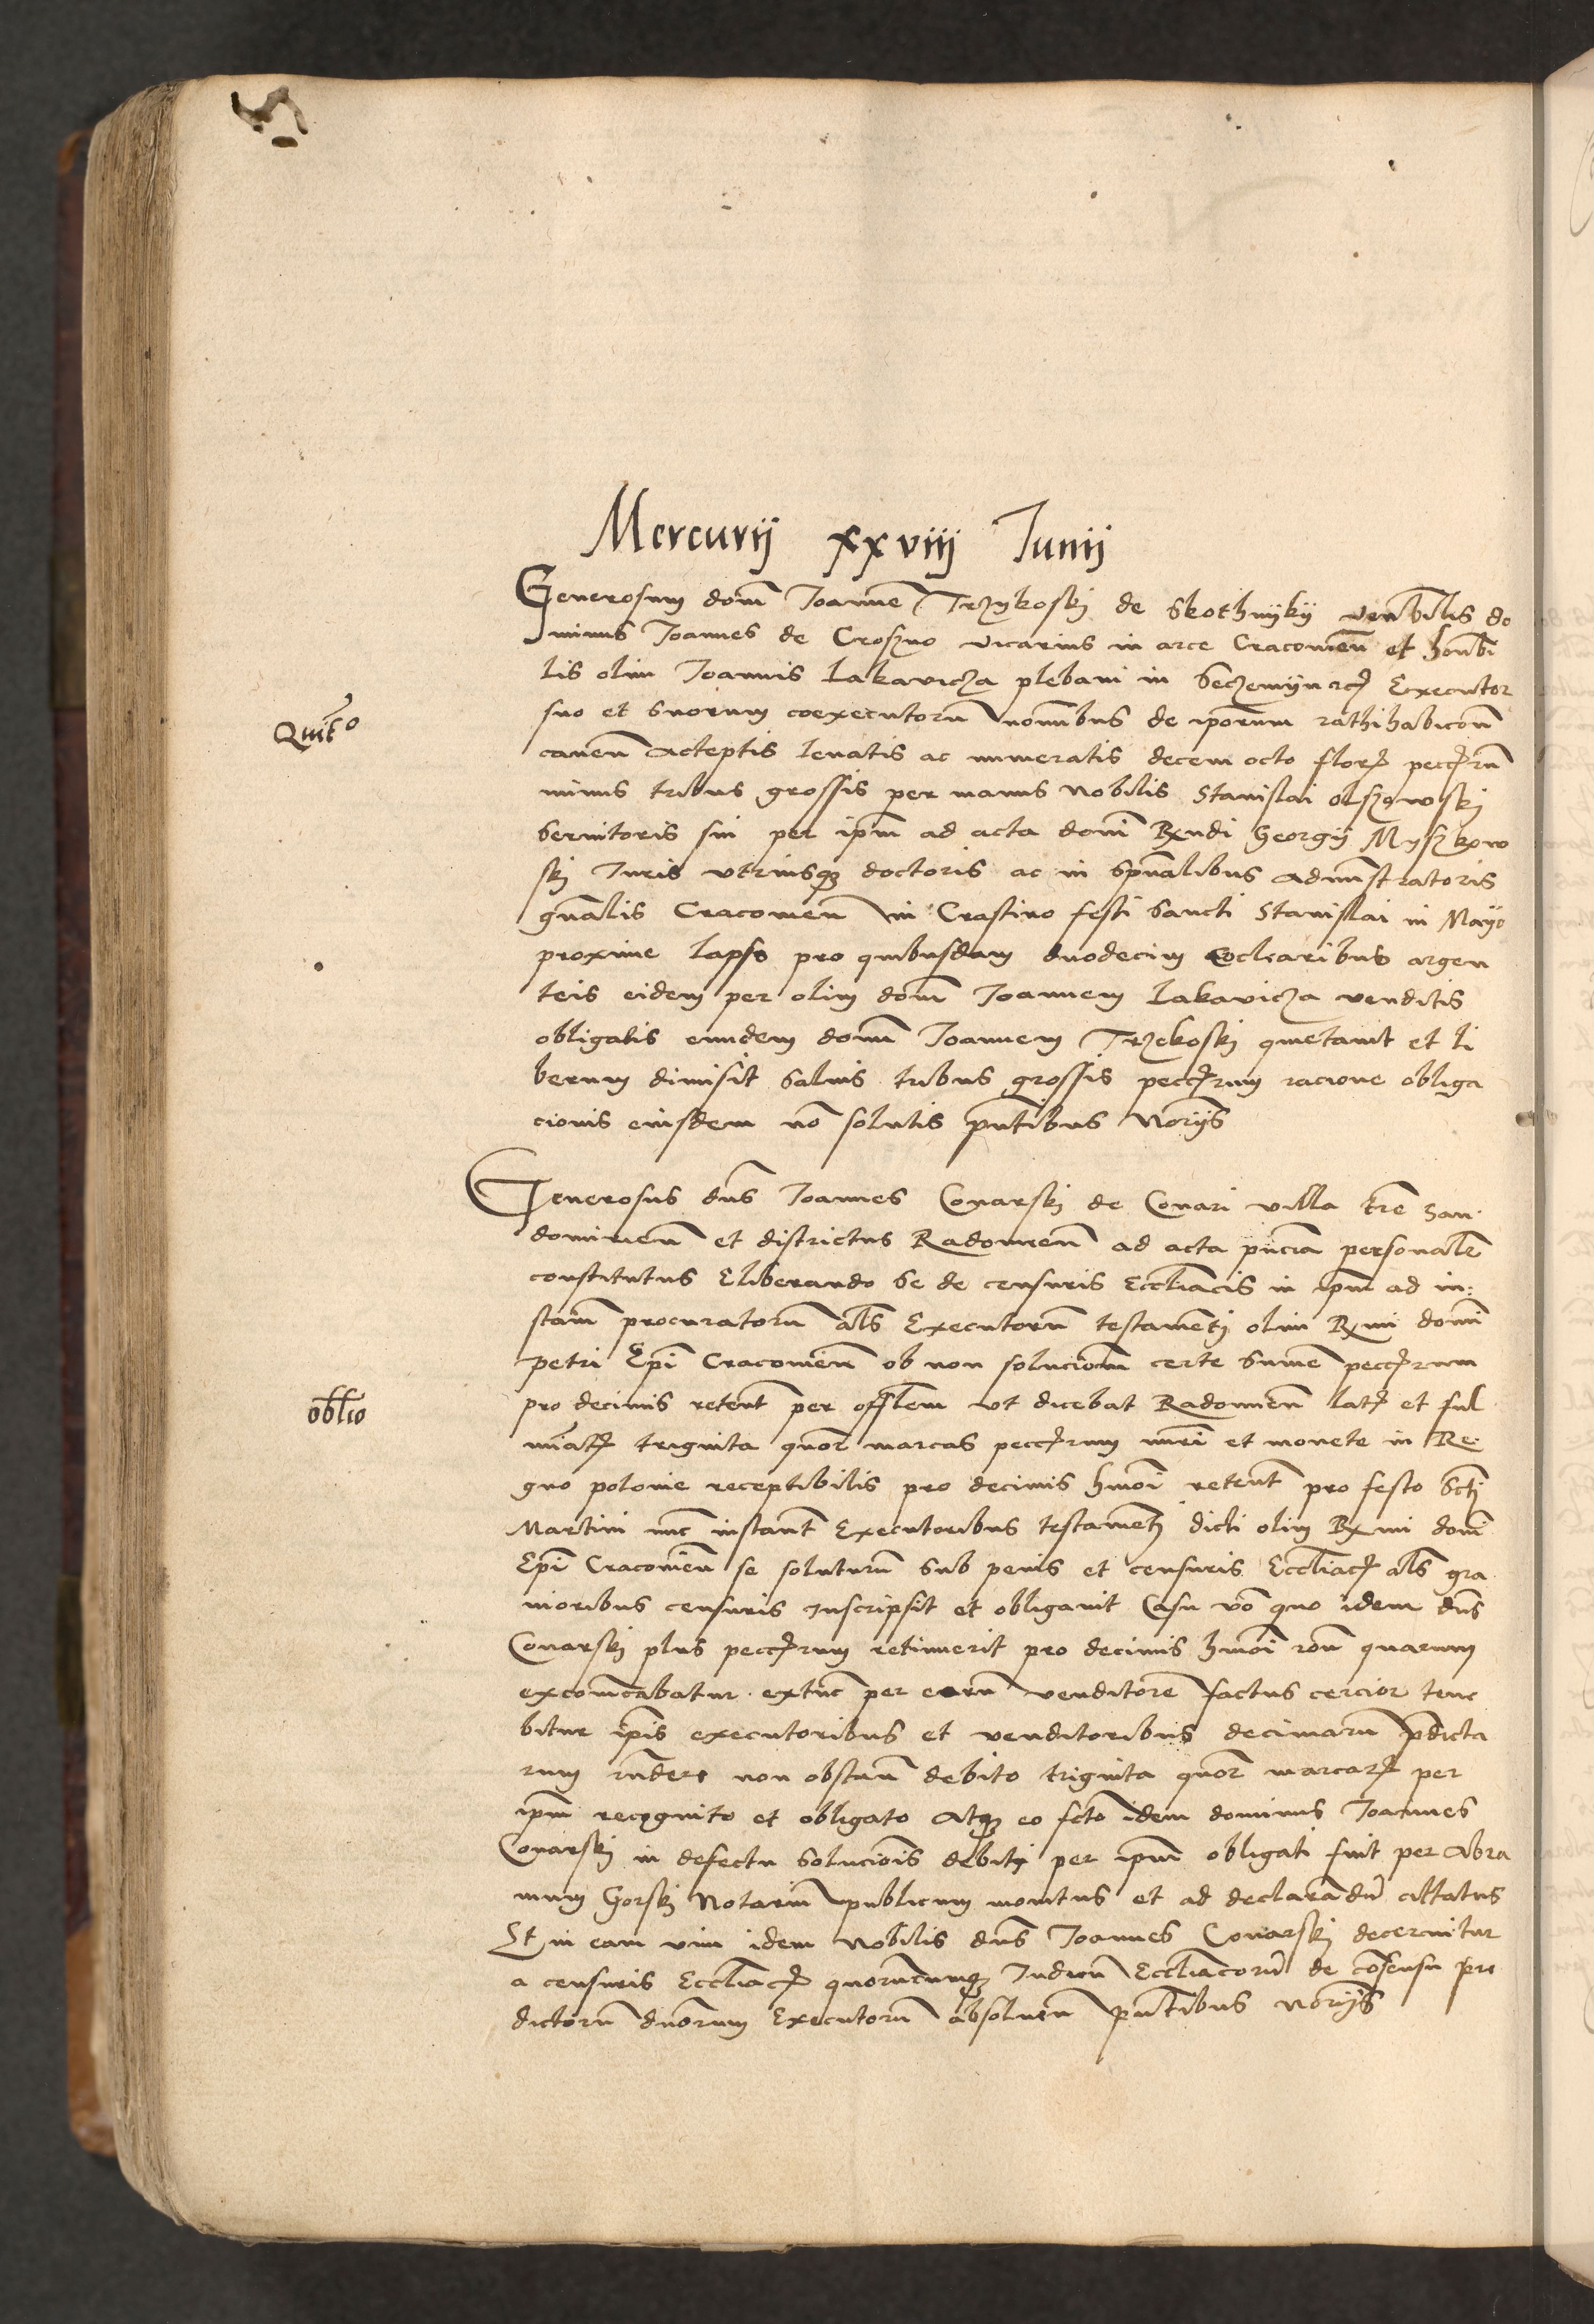 Mercurij xxviij Junij
Generosum dom̄ Joannē Trzykoskj de Skothnyky venb̄ilis do
minus Joannes de Croszno vicarius in arce Cracouien̄ et honb̄i
lis olim Joannis Lakavicza plebani in Executor
Quit͡o
suo et suorum coexecutorū nominibus de ip̄orum rathihabicōn
cauen̄ acceptis leuatis ac numeratis decem octo flor pecc̄rū
minus tribus grossis per manus Nobilis Stanislai Olszowskj
seruitoris sui per ip̄m ad acta domī Rn̄di Georgij Myszkow
skj Juris vtriusqȝ doctoris ac in spūalibus Administratoris
gnālis Cracouien̄ in Crastino festi Sancti Stanislai in Mayo
proxime lapso pro quibusdam duodecim coclearibus argen
teis eidem per olim dom̄ Joannem Lakavicza venditis
obligatis eundem domī Joannem Trzekoskj quietauit et li
berum dimisit saluis tribus grossis pecc̄rum racione obliga
cionis eiusdem nō solutis pn̄tibus Norijs
Generosus dn̄s Joannes Conarskj de Conari villa tr̄e San
domirien̄ et districtus Radomien̄ ad acta pn̄cia personalr̄
constitutus Eliberando se de censuris Eccl̄iacis in ip̄m ad in:
stam̄ procuratorū als̄ Executorū testamentj olim Rmi domī
petri Ep̄i Cracouien̄ ob non solucionē certe sum̄e pecc̄rum
oblio
pro decimis retent̄ per offlem vt dicebat Radomien̄ lat et ful
minat triginta quor̄ marcas pecc̄rum nūri et monete in Re:
gno polonie receptibilis pro decimis hmōi retent̄ pro festo Sctj
Martini nūc instant̄ Executoribus testamentj dicti olim Rmi domī
Ep̄i Cracouien̄ se soluturū sub penis et censuris Eccl̄iac als̄ gra
uioribus censuris inscripsit et obligauit Casu vō quo idem dn̄s
Conarskj plus pecc̄rum retinuerit pro decimis hmōi rōn quarum
excom̄cabatur extūc per eorū venditorē factus cercior tene
bitur ip̄is executoribus et venditoribus decimarū p̄dicta
rum rn̄dere non obstan̄ debito triginta quor̄ marcar per
ip̄m recognito et obligato Atqȝ eo fcto idem dominus Joannes
Conarskj in defectu solucio̅is debitj per ip̄m obligati fuit per Abra
mum Gorskj Notariū publicum monitus et ad declarādū cittatus
Et in eam vim idem Nobilis dn̄s Joannes Conarskj decernitur
a censuris Eccl̄iac quorūcunqȝ Judicū Eccl̄iacorū de cōsensu pre
dictorū dn̄orum Executorū absoluen̄ pn̄tibus Norijs